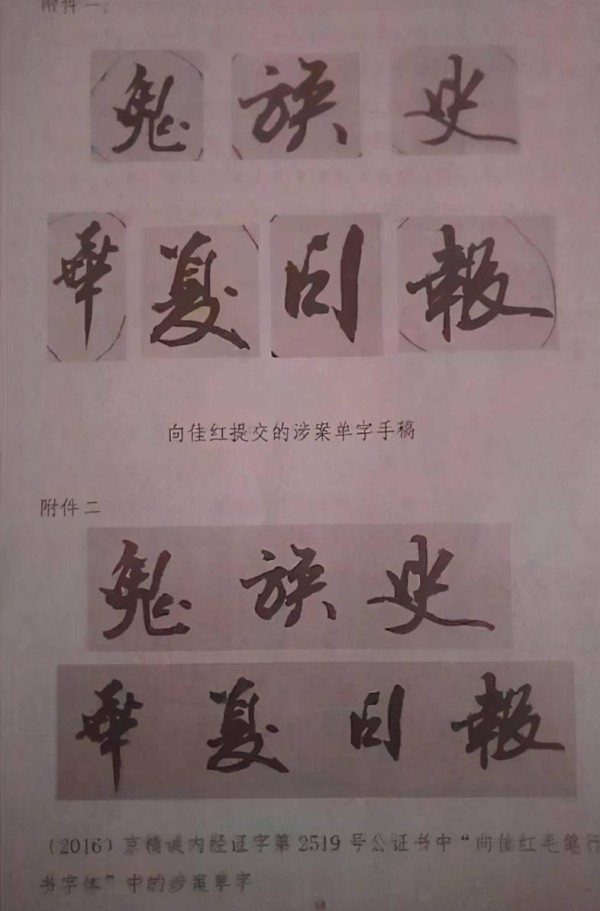 附件一
鬼族史
華夏日報
向佳红提交的涉案单字手稿
附件二
鬼族史
華夏日報
（2016）京精诚内经证字第 2519 号公证书中“向佳红毛笔行
书字体”中的涉案单字